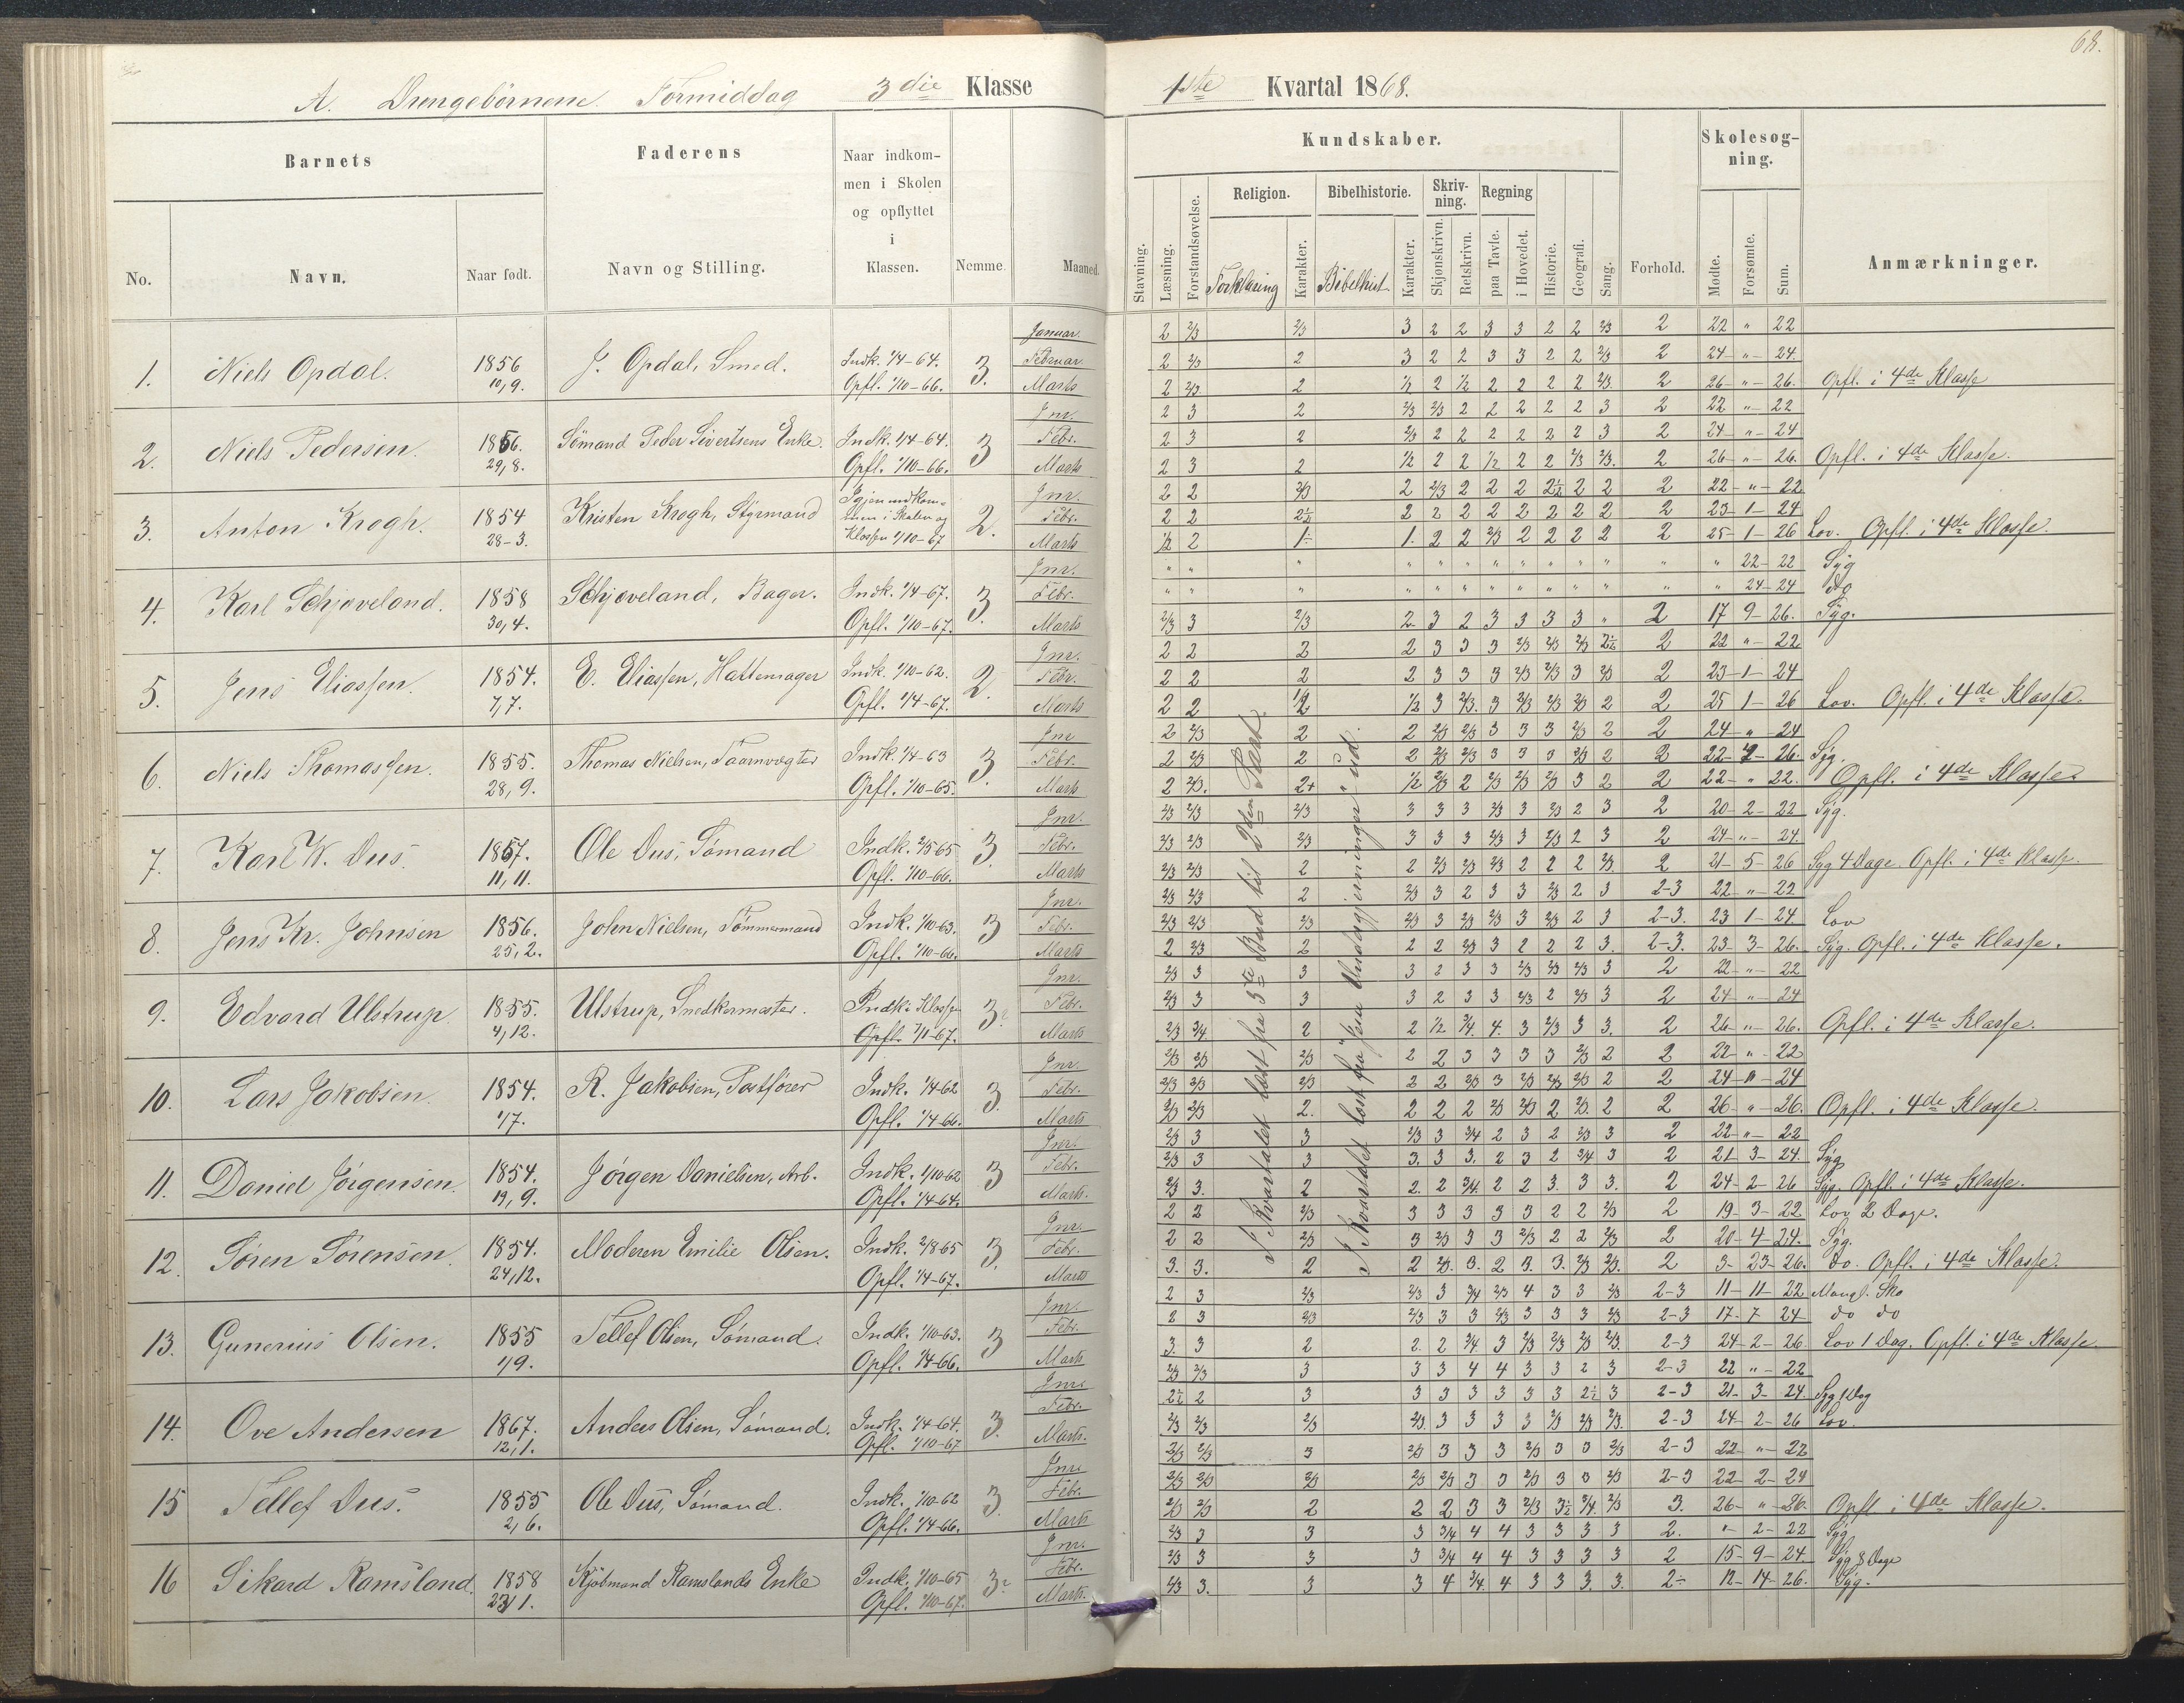 68.
A. Drengebörnene. Formiddag 3die Klasse 1ste Kvartal 1868.
Barnets
Faderens
Naar indkommen i Skolen og opflyttet i Klassen.
Nemme.
Maaned.
No.
Navn.
Naar født.
Navn og Stilling.
Kundskaber.
Stavning.
Læsning.
Forstandsøvelse.
Religion.
Forklaring
Karakter.
Bibelhistorie.
Bibelhist.
Karakter.
Skrivning.
Skjønskrivn.
Retskrivn.
Regning
paa Tavle.
i Hovedet.
Historie.
Geografi.
Sang.
Forhold.
Skolesøgning.
Mødte.
Forsømte.
Sum.
Anmærkninger.
1. Niels Opdal. 1856 10,9. J. Opdal, Smed. Indk. 1/4-64. Opfl. 1/10-66. 3.
Januar. 2 2/3 2/3 3 2 2 3 3 2 2 2/3 2 22 " 22
Februar 2 2/3 2 3 2 2 3 3 2 2 2/3 2 24-"-24.
Marts 2 2/3. 2 1/2 2 1/2 2 2 2 2 2/3. 2 26-"-26. Opfl. i 4de Klasse
2. Niels Pedersen. 1856. 29,8. Sömand Peder Sivertsens Enke. Indk. 1/4-64. Opfl. 1/10-66. 3
Jnr. 2 3 2 2/3 2/3 2 2 2 2 2 3 2 22 "-22
Febr. 2 3 2 2/3 2 2 2 2 2 2 3 2 24-"-24
Marts 2 3 2 1/2 2 2 1/2 2 2 2/3 2/3. 2 26-"-26. Opfl. i 4de Klasse.
3. Anton Krogh. 1854 28-3. Kristen Krogh, Styrmand Igjen indkommen i Skolen og Klassen 1/10-67 2.
Jnr. 2 2 2/3 2 2/3 2 2 2 2½ 2 2 2 22-"-22
Febr. 2 2 2½ 2 2 2 2 2 2 2 2 2 23-1-24
Marts 1/2 2 1÷ 1. 2 2 2/3 2 2 2 2 2 25-1-26 Lov. Opfl. i 4de Klasse.
4. Karl Schjøveland. 1858 30,4. Schjøveland, Bager. Indk. 1/4-67. Opfl. 1/10-67. 3.
Jnr. " " " " " " " " " " " " " 22-22 Syg
Febr. " " " " " " " " " " " " " 24-24 do
Marts 2/3 3 2/3 2 3 2 3 3 3 3 " 2 17 9-26. Syg.
5. Jens Eliassen. 1854. 7,7. E. Eliassen, Hattemager Indk. 1/10-62. Opfl. 1/4-67. 2.
Jnr. 2 2 2 2 3 3 3 2/3 2/3 2/3 2½ 2 22 "-22
Febr. 2 2 2 2 3 3 3 2/3 2/3 3 2/3 2 23-1-24
Marts 2 2 1/2 1/2 3 2/3. 3 2/3 2/3 2/3 2 2 25 1-26 Lov. Opfl. i 4de Klasse.
6. Niels Thomassen. 1855. 28,9. Thomas Nielsen, Taarnvægter Indk. 1/4-63 Opfl. 1/10-65. 3.
Jnr 2 2/3 2 2 2/3 2/3 3 3 3 2/3 2 2 24-"-24
Febr. 2 2/3 2 2 2/3 2/3 3 3 3 2/3 2 2 22-4-26. Syg.
Marts 2 2/3. 2+ 1/2 2/3 2 2/3 2/3 2/3 3 2 2 22-"-22. Opfl. i 4de Klasse
7. Karl W. Dus. 1857. 11,11. Ole Dus, Sömand Indk. 2/5-65 Opfl. 1/10-66. 3.
Jnr. 2/3 2/3 2/3 3 3 3 2/3 3 2/3 2 3 2 20-2-22 Syg.
Febr. 2/3 2/3 2/3 3 3 3 2/3 3 2/3 2 3 2 24-"-24.
Marts 2/3 2/3 2 2 2/3 2/3 2/3 2 2 2 2/3. 2 21-5-26 Syg 4 Dage. Opfl. i 4de Klasse.
8. Jens Kr. Johnsen 1856. 25,2. John Nielsen, Tömmermand Indk. 1/10-63. Opfl. 1/10-66. 3
Jnr. 2/3 2/3 2 2/3 3 2 3 3 2/3 2 3 2-3 22 "-22
Febr. 2/3 2/3 2/3 2/3 3 2/3 2/3 3 2/3 2 3 2-3. 23 1-24 Lov
Marts 2 2/3 2 2 2 2/3 3 2 2 2 3. 2-3. 23-3-26. Syg. Opfl. i 4de Klasse.
9. Edvard Ulstrup 1855. 4,12. Ulstrup, Snedkermester. Indk. i Klassen Opfl. 7/1-67. 3÷
Jnr. 2/3 3 3 3 2 3 3 2/3 2/3 2/3 3 2 22-"-22
Febr. 2/3 3 3 3 2 3 3 2/3 2 2/3 3 2 24-"-24
Marts 2/3 3/4. 2 2 1/2 3/4. 4. 3 2/3 3 3. 2 26-"-26. Opfl. i 4de Klasse.
10. Lars Jakobsen. 1854. 1/7. R. Jakobsen, Postfører Indk. 1/4-62 Opfl. 1/4-66. 3.
Jnr. 2/3 2/3 2/3 2 2 3 3 3 3 2/3 2 2 22-"-22
Febr. 2/3 2/3 2/3 2 2 2/3 3 2/3 2/3 2/3 2 2 24-"-24
Marts 2/3 2/3 2. 2 2 2 2/3 2/3 2 2/3. 2 2 26-"-26. Opfl. i 4de Klasse.
11. Daniel Jörgensen. 1854. 19,9. Jörgen Danielsen, Arb. Indk. 1/10-62 Opfl. 1/4-64. 3
Jnr. 2/3 3 3 2/3 3 3/4 2 3 2 2/3 3 2 22-"-22
Febr. 2/3 3 3 3. 3 3. 2 3 2 3/4 3 2 21 3-24. Syg
Marts. 2/3 3. 2 2. 2 3/4. 2 2 3. 3 3. 2 24-2-26 Syg. Opfl. i 4de Klasse.
12. Sören Sörensen. 1854. 24,12. Moderen Emilie Olsen. Indk. 2/8-65 Opfl. 1/4-67. 3.
Jnr. 2 2 2/3 3 3 3 3 3 2 2 2/3 2 19-3-22 Lov 2 Dage.
Febr. 2 2 2/3 3 2/3 3 3 2/3 2 2 2/3 2 20-4-24. Syg.
Marts 3. 3. 2 2 2/3. 3. 2 3. 3. 2/3 2/3. 2 3-23-26. do. Opfl. i 4de Klasse.
13. Gunerius Olsen. 1855 1/9. Tellef Olsen, Sömand. Indk. 1/10-63. Opfl. 1/4-66. 3
Jnr. 2 3 2/3 2/3 3 3/4 2/3 4 3 3 2/3 2-3 11-11-22 Mangl. Sko
Febr. 2 3 2/3 2/3 3 3 2/3 3 3 3 2/3 2-3 17-7 24 do do
Marts 3. 3 2 2. 2 3/4 3 2/3 2/3 2/3 2/3. 2-3 24-2-26 Lov 1 Dag. Opfl. i 4de Klasse.
14. Ove Andersen 1867. 12,1. Anders Olsen, Sömand. Indk. 1/4-64. Opfl. 1/10-67 3.
Jnr. 2/3 2/3 3 3 3 4 4 3 3 2 3 2-3 22 "-22
Febr. 2½ 2 3 3 3 3 3 3 3 2½ 3 2-3 21-3-24 Syg 1 Dag
Marts. 2/3 2/3 2/3 2/3. 3 3 3 3 2/3 2/3 2/3. 2-3 24-2-26 Lov.
15 Tellef Dus. 1855 2,6. Ole Dus, Sömand. Indk. 1/10-62 Opfl. 1/4-66. 3.
Jnr. 2/3 2/3 3 2/3 3 3 3 2/3 3 3 2/3 2-3 22 "-22
Febr. 2/3 2/3 2/3 2/3 2/3 3 3 2/3 3 3 2/3 2-3 22 2-24
Marts 2/3 2/3 2 2 2 3 3 2/3 3½ 3/4 2/3 3. 26-"-26. Opfl. i 4de Klasse.
16 Sikard Ramsland. 1858 23/1. Kjöbmand Ramslands Enke Indk. 1/10-65 Opfl. 1/10-67. 3÷
Jnr. 2/3 3 3 3 3/4 4 4 3 3 3 3 2. "-2-22 Syg
Febr. 2/3 3 3 3 3/4 4 4 3 3 3 3 2 15-9-24. Syg 8 Dage
Marts. 2/3 3. 3 3 4 3/4 4 3 3 3. 3. 2÷ 12-14-26. Syg.
I Kvartalet læst fra 3te Bud til 2den Part.
I Kvartalet læst fra "Jesu Undergjerninger" ud.